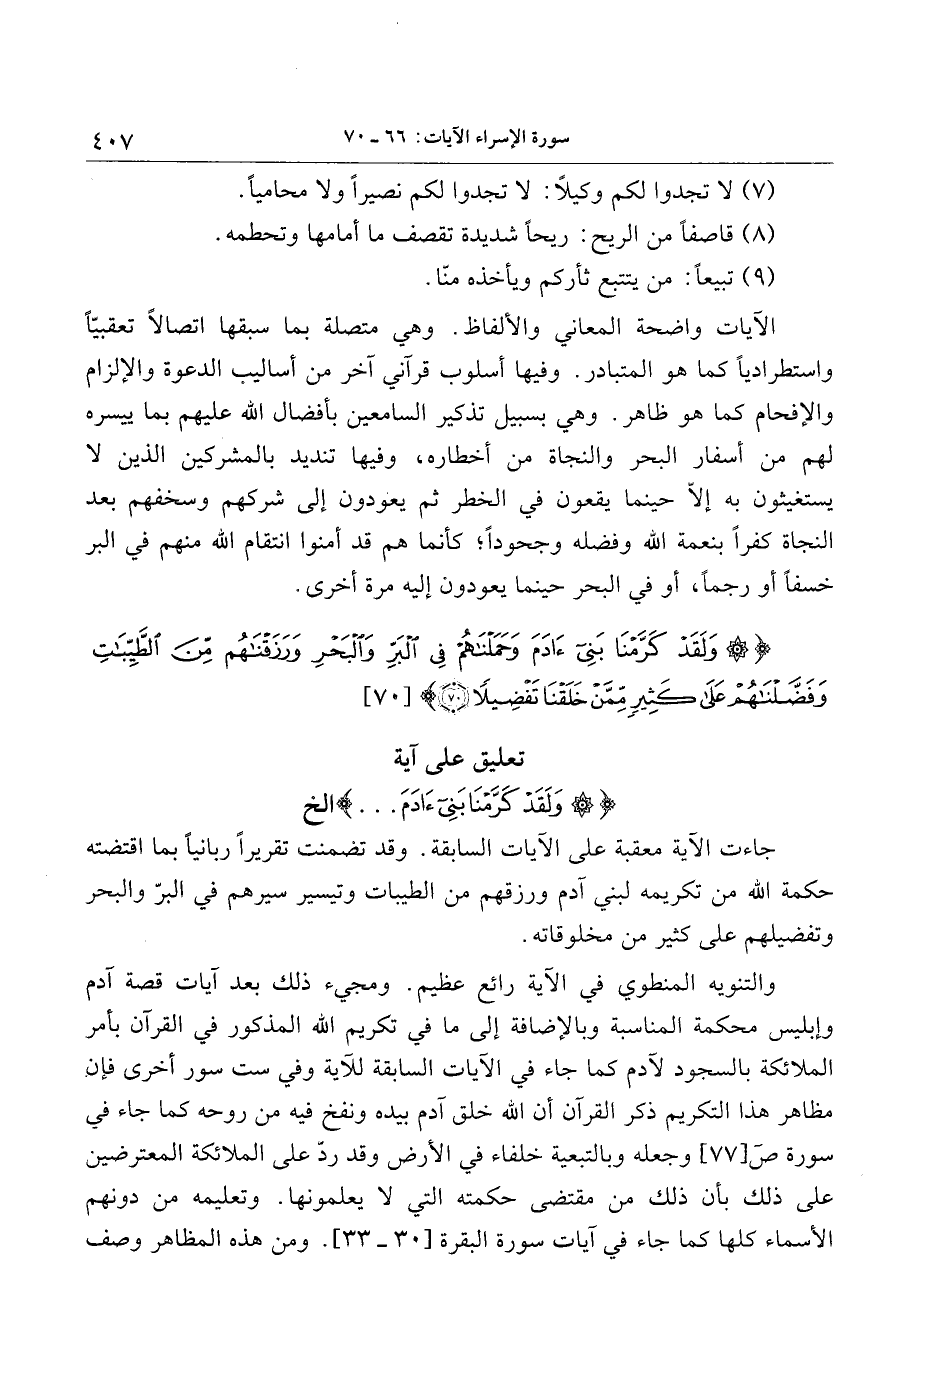 سورة الإسراء الآيات: ٦٦ ـ ٧٠ ٤٠٧
(٧) لا تجدوا لكم وكيلاً: لا تجدوا لكم نصيراً ولا محامياً.
(٨) قاصفاً من الريح: ريحاً شديدة تقصف ما أمامها وتحطمه.
(٩) تبيعاً: من يتتبع ثأركم ويأخذه منّا.
الآيات واضحة المعاني والألفاظ. وهي متصلة بما سبقها اتصالاً تعقبيّاً
واستطرادياً كما هو المتبادر. وفيها أسلوب قرآني آخر من أساليب الدعوة والإلزام
والإفحام كما هو ظاهر. وهي بسبيل تذكير السامعين بأفضال الله عليهم بما ييسره
لهم من أسفار البحر والنجاة من أخطاره، وفيها تنديد بالمشركين الذين لا
يستغيثون به إلاّ حينما يقعون في الخطر ثم يعودون إلى شركهم وسخفهم بعد
النجاة كفراً بنعمة الله وفضله وجحوداً؛ كأنما هم قد أمنوا انتقام الله منهم في البر
خسفاً أو رجماً، أو في البحر حينما يعودون إليه مرة أخرى.
﴿ ۞ وَلَقَدْ كَرَّمْنَا بَنِيٓ ءَادَمَ وَحَمَلْنَٰهُمْ فِي ٱلْبَرِّ وَٱلْبَحْرِ وَرَزَقْنَٰهُم مِّنَ ٱلطَّيِّبَٰتِ
وَفَضَّلْنَٰهُمْ عَلَىٰ كَثِيرٍ مِّمَّنْ خَلَقْنَا تَفْضِيلًا ۝٧٠ ﴾ [٧٠]
تعليق على آية
﴿ ۞ وَلَقَدْ كَرَّمْنَا بَنِيٓ ءَادَمَ . . . ﴾ الخ
جاءت الآية معقبة على الآيات السابقة. وقد تضمنت تقريراً ربانياً بما اقتضته
حكمة الله من تكريمه لبني آدم ورزقهم من الطيبات وتيسير سيرهم في البرّ والبحر
وتفضيلهم على كثير من مخلوقاته.
والتنويه المنطوي في الآية رائع عظيم. ومجيء ذلك بعد آيات قصة آدم
وإبليس محكمة المناسبة وبالإضافة إلى ما في تكريم الله المذكور في القرآن بأمر
الملائكة بالسجود لآدم كما جاء في الآيات السابقة للآية وفي ست سور أخرى فإن
مظاهر هذا التكريم ذكر القرآن أن الله خلق آدم بيده ونفخ فيه من روحه كما جاء في
سورة صَ [٧٧] وجعله وبالتبعية خلفاء في الأرض وقد ردّ على الملائكة المعترضين
على ذلك بأن ذلك من مقتضى حكمته التي لا يعلمونها. وتعليمه من دونهم
الأسماء كلها كما جاء في آيات سورة البقرة [٣٠ ـ ٣٣]. ومن هذه المظاهر وصف